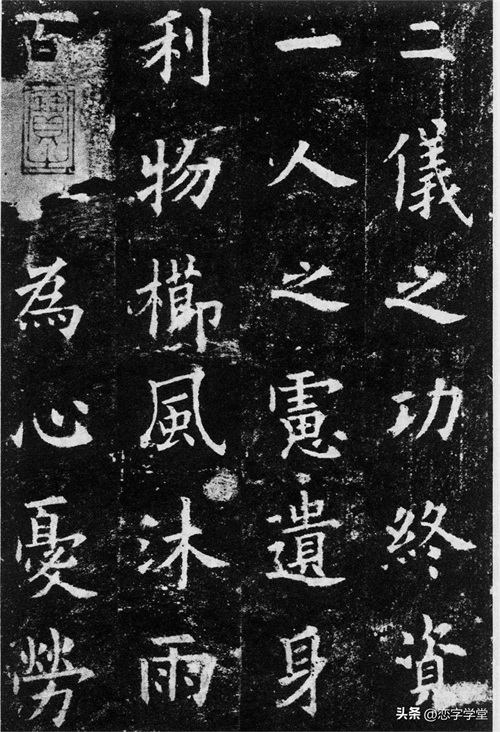 二儀之功終資
一人之慮遺身
利物櫛風沐雨
百為心憂勞
头条 @恋字学堂